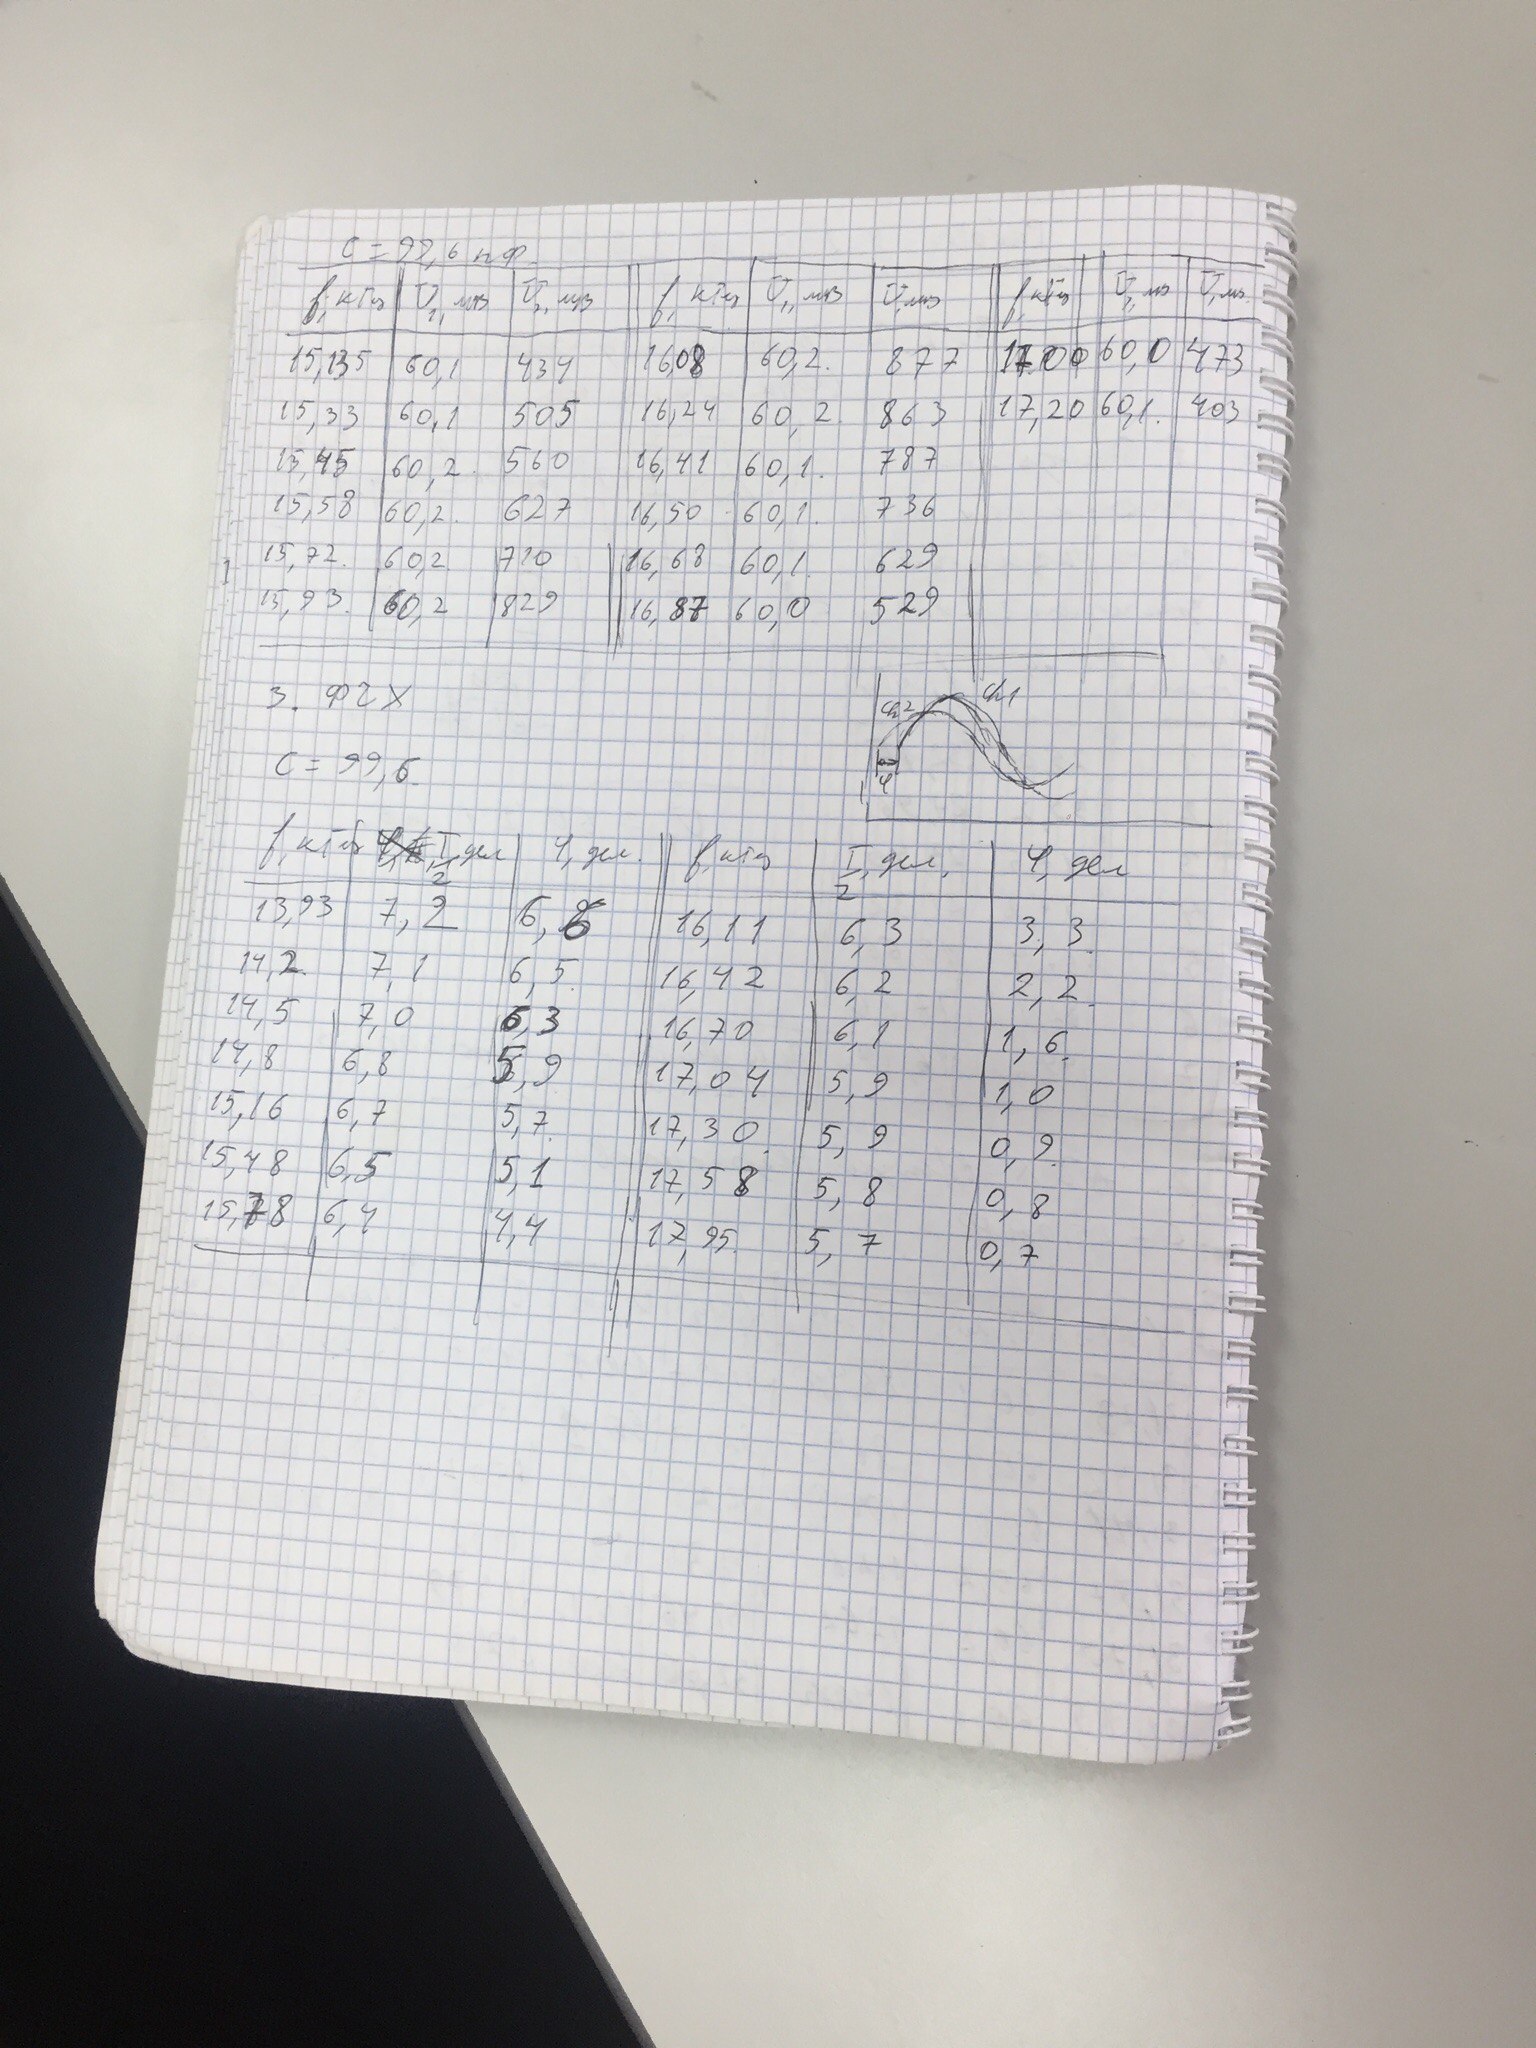 C = 99,6 пФ.
f, кГц U1, мВ U, мВ f, кГц U1, мВ U, мВ f, кГц U1, мВ U, мВ
15,135 60,1 434 16,08 60,2 877 17,00 60,0 473
15,33 60,1 505 16,24 60,2 863 17,20 60,1 403
15,45 60,2 560 16,41 60,1 787
15,58 60,2 627 16,50 60,1 736
15,72 60,2 710 16,68 60,1 629
15,93 60,2 829 16,87 60,0 529
3. ФЧХ
ch2 ch1
φ
C = 99,6
f, кГц T/2, дел φ, дел. f, кГц T/2, дел, φ, дел
13,93 7,2 6,6 16,11 6,3 3,3
14,2 7,1 6,5 16,42 6,2 2,2
14,5 7,0 6,3 16,70 6,1 1,6
14,8 6,8 5,9 17,04 5,9 1,0
15,16 6,7 5,7 17,30 5,9 0,9
15,48 6,5 5,1 17,58 5,8 0,8
15,78 6,4 4,4 17,95 5,7 0,7